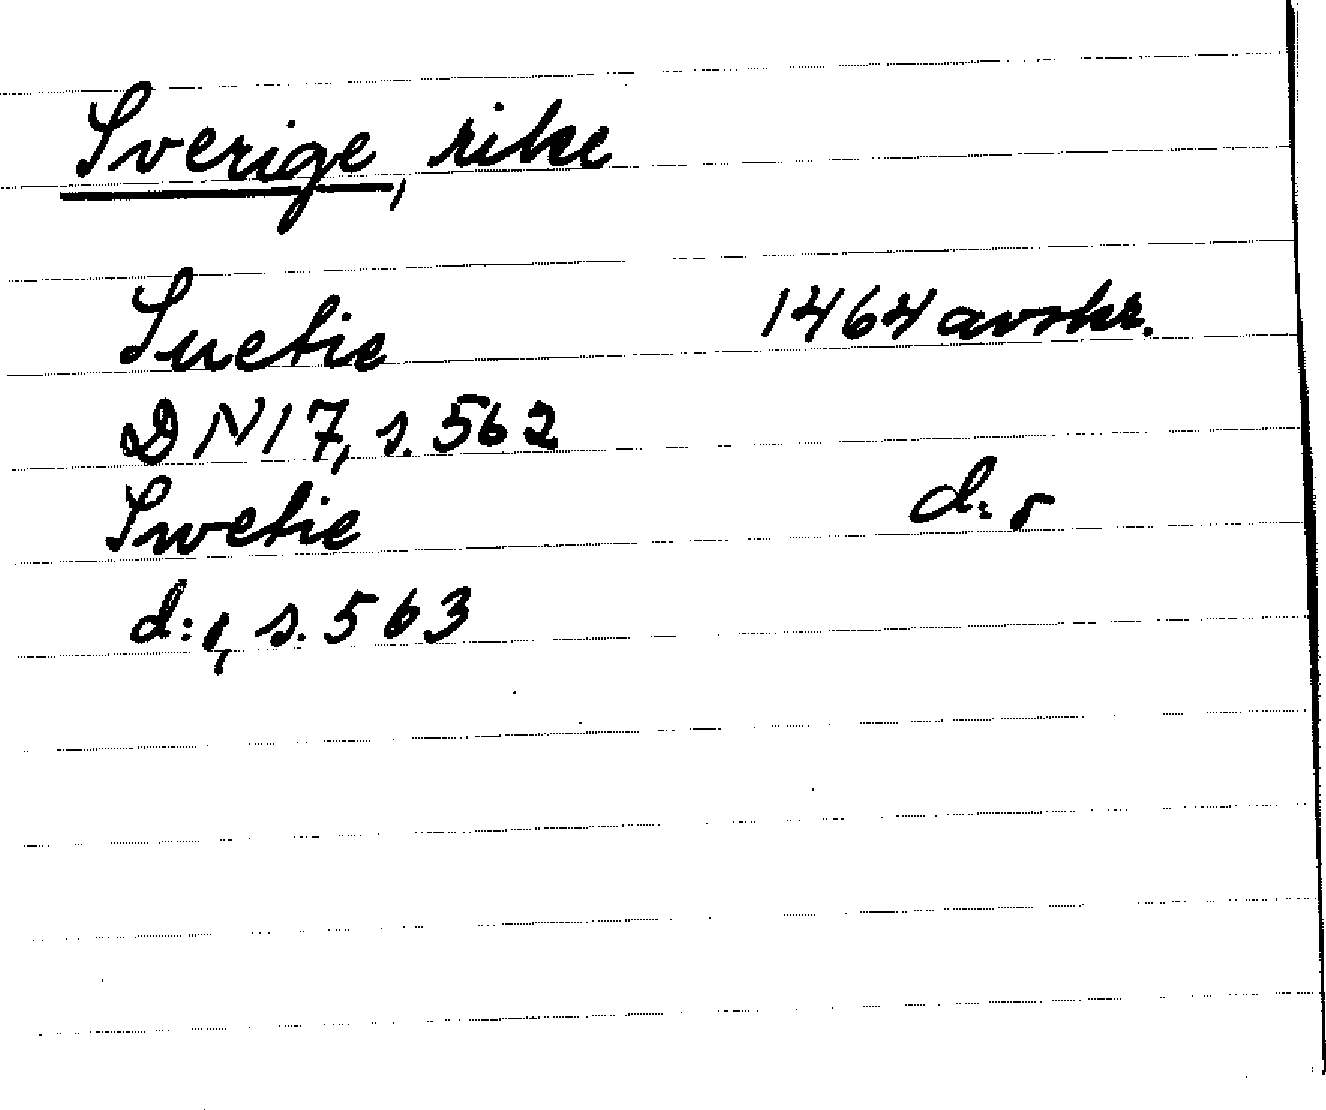 Sverige, rike
Suetie 1464 avskr.
DN 17, s. 562
Swetie d:o
d:o, s. 563